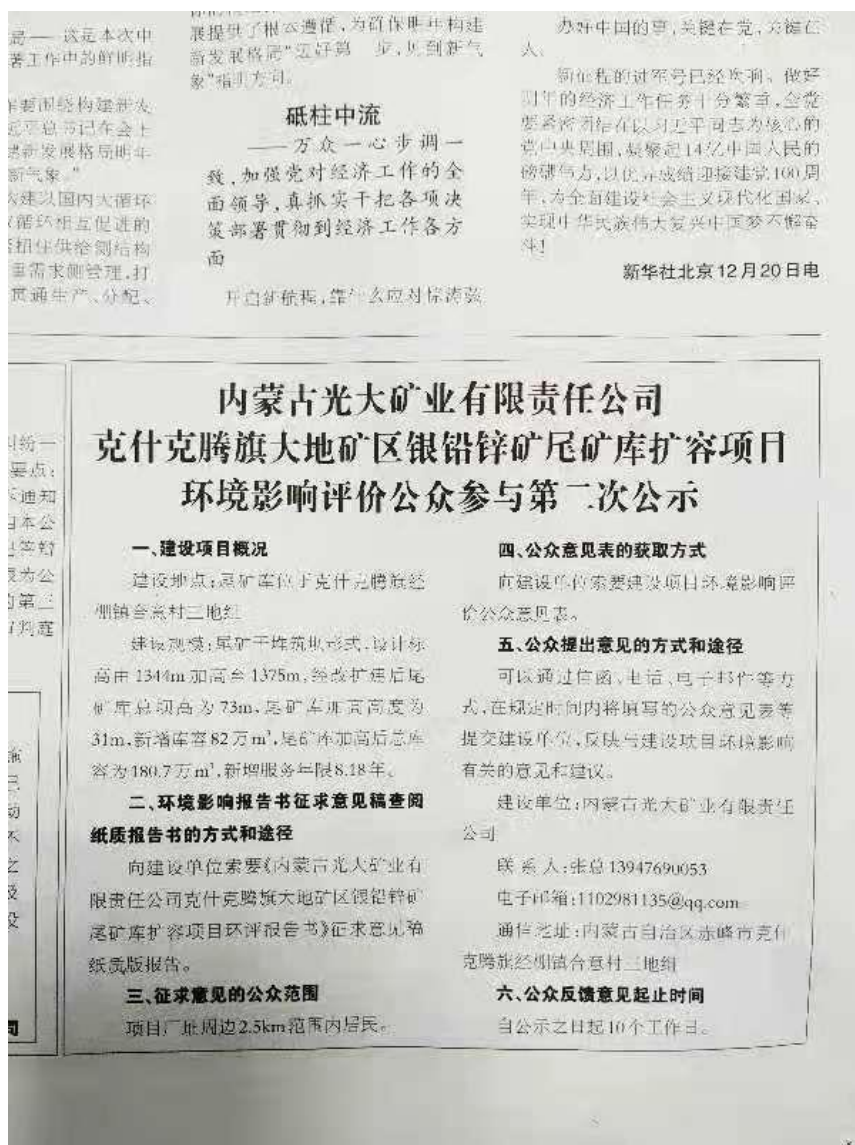 局——这是本次中
署工作中的鲜明指
展提供了根本遵循，为确保明年构建
新发展格局“迈好第一步，见到新气
象”指明方向。
砥柱中流
——万众一心步调一
致，加强党对经济工作的全
面领导，真抓实干把各项决
策部署贯彻到经济工作各方
面
开启新航程，靠什么应对惊涛骇
办好中国的事，关键在党，关键在
人。
新征程的进军号已经吹响。做好
明年的经济工作任务十分繁重，全党
要紧密团结在以习近平同志为核心的
党中央周围，凝聚起14亿中国人民的
磅礴伟力，以优异成绩迎接建党100周
年，为全面建设社会主义现代化国家、
实现中华民族伟大复兴中国梦不懈奋
斗！
新华社北京12月20日电
要围绕构建新发
近平总书记在会上
新发展格局明年
新气象。”
建以国内大循环
循环相互促进的
扭住供给侧结构
重需求侧管理，打
贯通生产、分配、
内蒙古光大矿业有限责任公司
克什克腾旗大地矿区银铅锌矿尾矿库扩容项目
环境影响评价公众参与第二次公示
一、建设项目概况
建设地点：尾矿库位于克什克腾旗经
棚镇合意村三地组
建设规模：尾矿干堆筑坝形式，设计标
高由1344m加高至1375m，经改扩建后尾
矿库总坝高为73m，尾矿库加高高度为
31m，新增库容82万m³，尾矿库加高后总库
容为180.7万m³，新增服务年限8.18年。
二、环境影响报告书征求意见稿查阅
纸质报告书的方式和途径
向建设单位索要《内蒙古光大矿业有
限责任公司克什克腾旗大地矿区银铅锌矿
尾矿库扩容项目环评报告书》征求意见稿
纸质版报告。
三、征求意见的公众范围
项目厂址周边2.5km范围内居民。
四、公众意见表的获取方式
向建设单位索要建设项目环境影响评
价公众意见表。
五、公众提出意见的方式和途径
可以通过信函、电话、电子邮件等方
式，在规定时间内将填写的公众意见表等
提交建设单位，反映与建设项目环境影响
有关的意见和建议。
建设单位：内蒙古光大矿业有限责任
公司
联 系 人：张总 13947690053
电子邮箱：1102981135@qq.com
通信地址：内蒙古自治区赤峰市克什
克腾旗经棚镇合意村三地组
六、公众反馈意见起止时间
自公示之日起10个工作日。